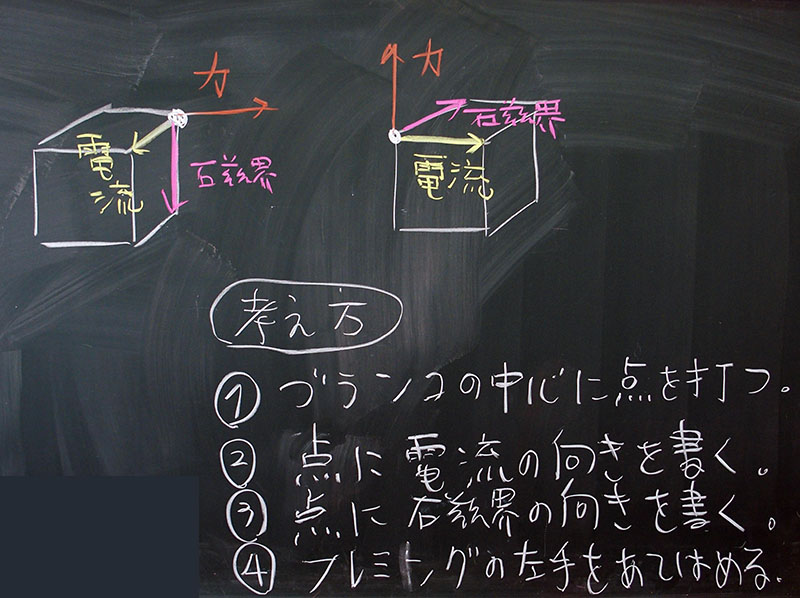 力
電流
磁界
力
磁界
電流
考え方
① ブランコの中心に点を打つ。
② 点に電流の向きを書く。
③ 点に磁界の向きを書く。
④ フレミングの左手をあてはめる。